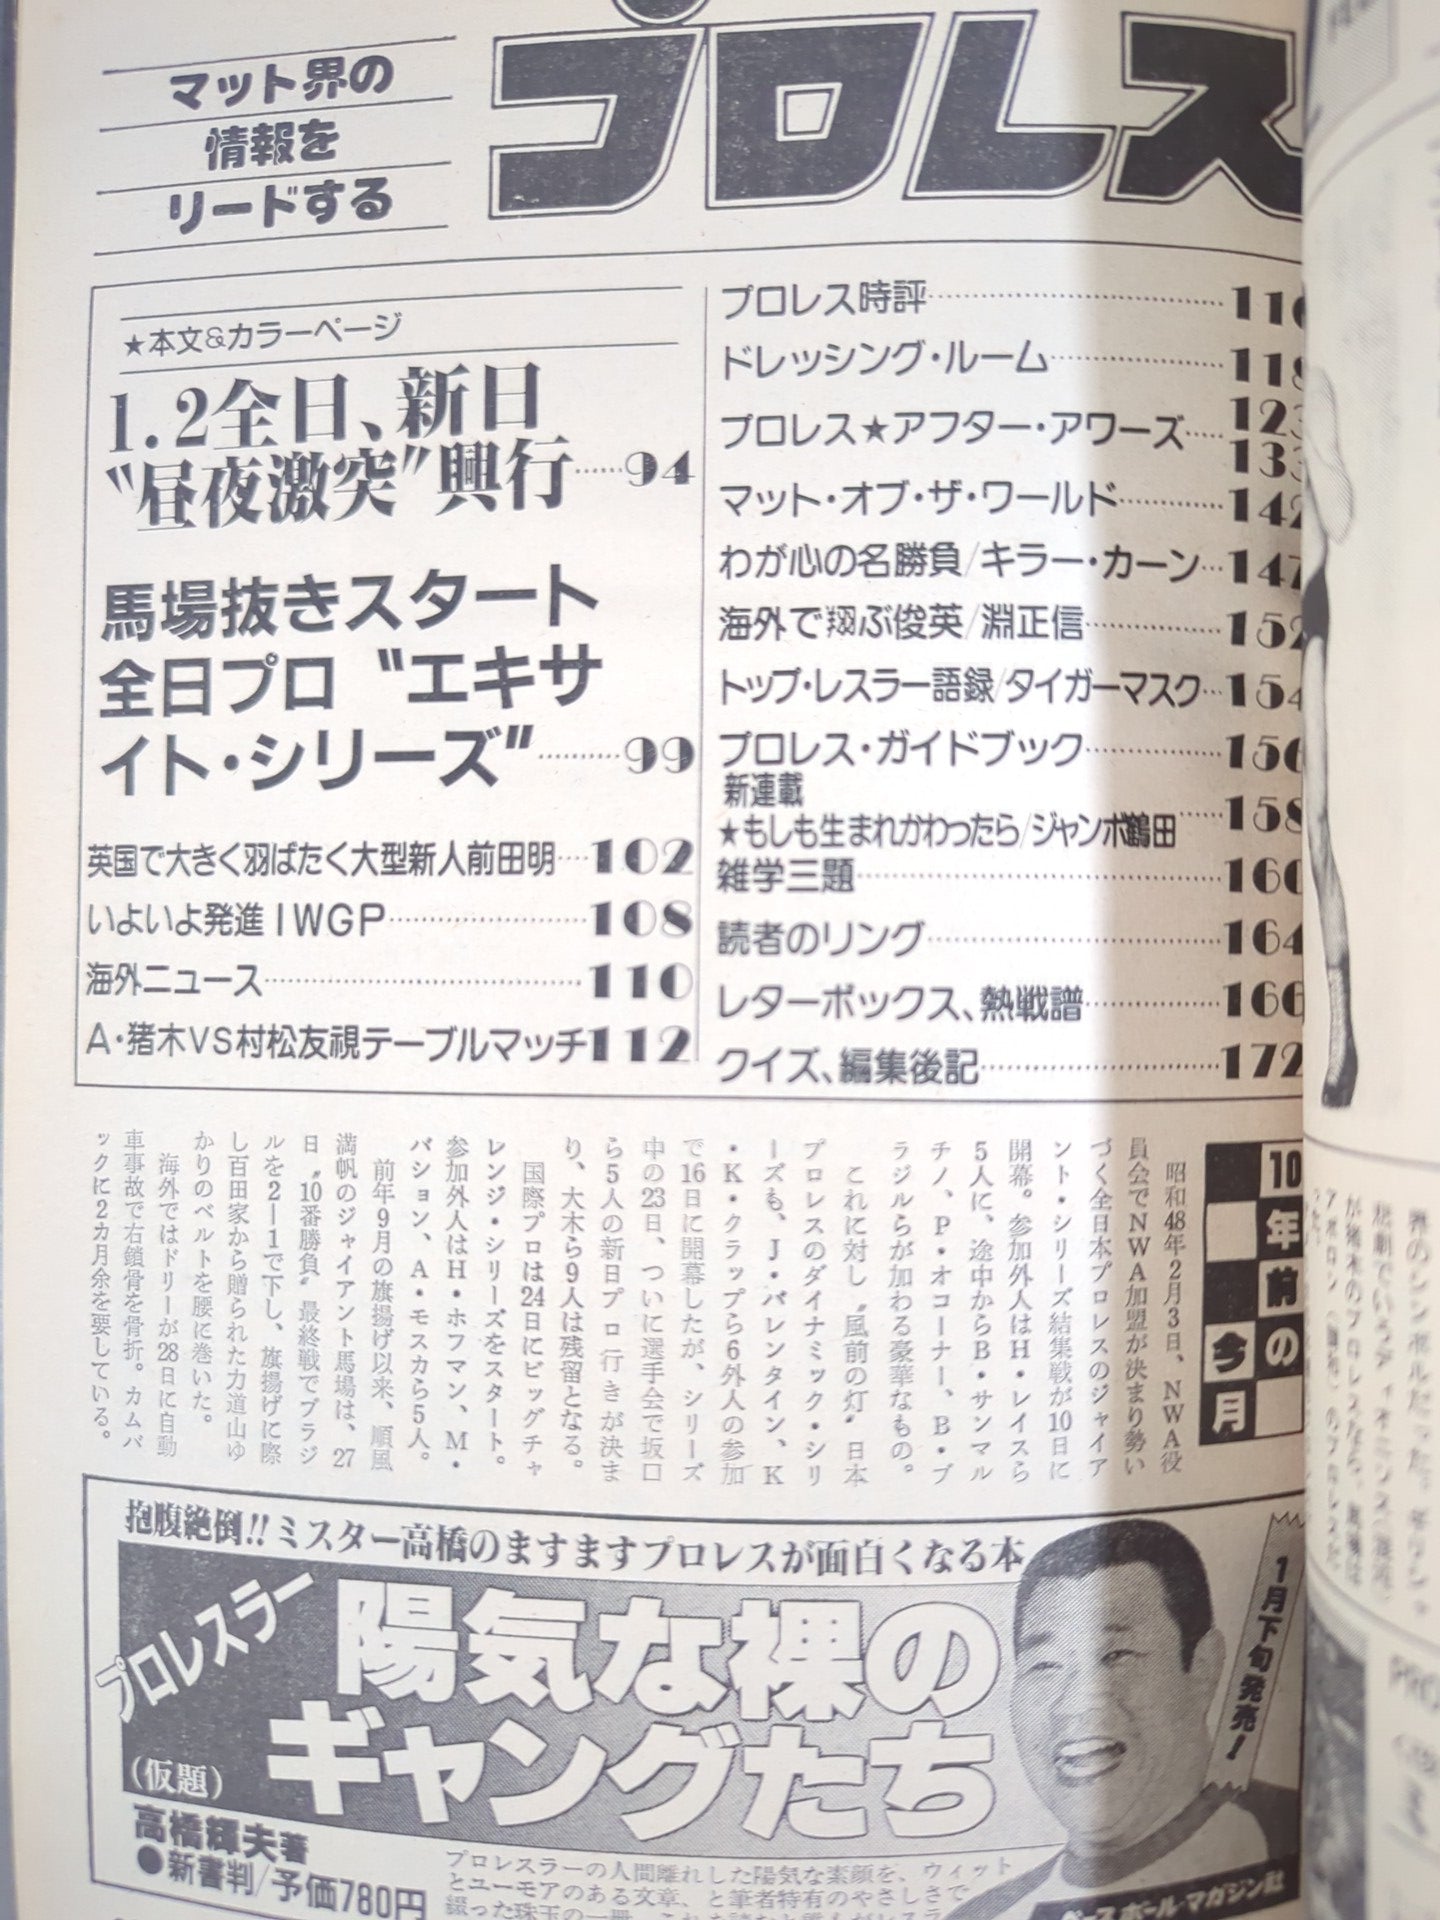 マット界の
情報を
リードする
プロレス
★本文&カラーページ
1.2全日、新日
〝昼夜激突〟興行……94
馬場抜きスタート
全日プロ〝エキサ
イト・シリーズ〟………99
英国で大きく羽ばたく大型新人前田明…102
いよいよ発進IWGP………108
海外ニュース………110
A・猪木VS村松友視テーブルマッチ112
プロレス時評………116
ドレッシング・ルーム………118
プロレス★アフター・アワーズ……123
133
マット・オブ・ザ・ワールド………142
わが心の名勝負/キラー・カーン…147
海外で翔ぶ俊英/淵正信………152
トップ・レスラー語録/タイガーマスク…154
プロレス・ガイドブック………156
新連載
★もしも生まれかわったら/ジャンボ鶴田……158
雑学三題………160
読者のリング………164
レターボックス、熱戦譜………166
クイズ、編集後記………172
10年前の
今月
昭和48年2月3日、NWA役
員会でNWA加盟が決まり勢い
づく全日本プロレスのジャイア
ント・シリーズ結集戦が10日に
開幕。参加外人はH・レイスら
5人に、途中からB・サンマル
チノ、P・オコーナー、B・ブ
ラジルらが加わる豪華なもの。
これに対し〝風前の灯〟日本
プロレスのダイナミック・シリ
ーズも、J・バレンタイン、K
・K・クラップら6外人の参加
で16日に開幕したが、シリーズ
中の23日、ついに選手会で坂口
ら5人の新日プロ行きが決ま
り、大木ら9人は残留となる。
国際プロは24日にビッグチャ
レンジ・シリーズをスタート。
参加外人はH・ホフマン、M・
バション、A・モスカら5人。
前年9月の旗揚げ以来、順風
満帆のジャイアント馬場は、27
日〝10番勝負〟最終戦でブラジ
ルを2―1で下し、旗揚げに際
し百田家から贈られた力道山ゆ
かりのベルトを腰に巻いた。
海外ではドリーが28日に自動
車事故で右鎖骨を骨折。カムバ
ックに2カ月余を要している。
抱腹絶倒!!ミスター高橋のますますプロレスが面白くなる本
プロレスラー
陽気な裸の
ギャングたち
(仮題)
高橋輝夫著
●新書判/予価780円
プロレスラーの人間離れした陽気な素顔を、ウィット
とユーモアのある文章、と筆者特有のやさしさで
綴った珠玉の一冊。
1月下旬発売!
ベースボール・マガジン社